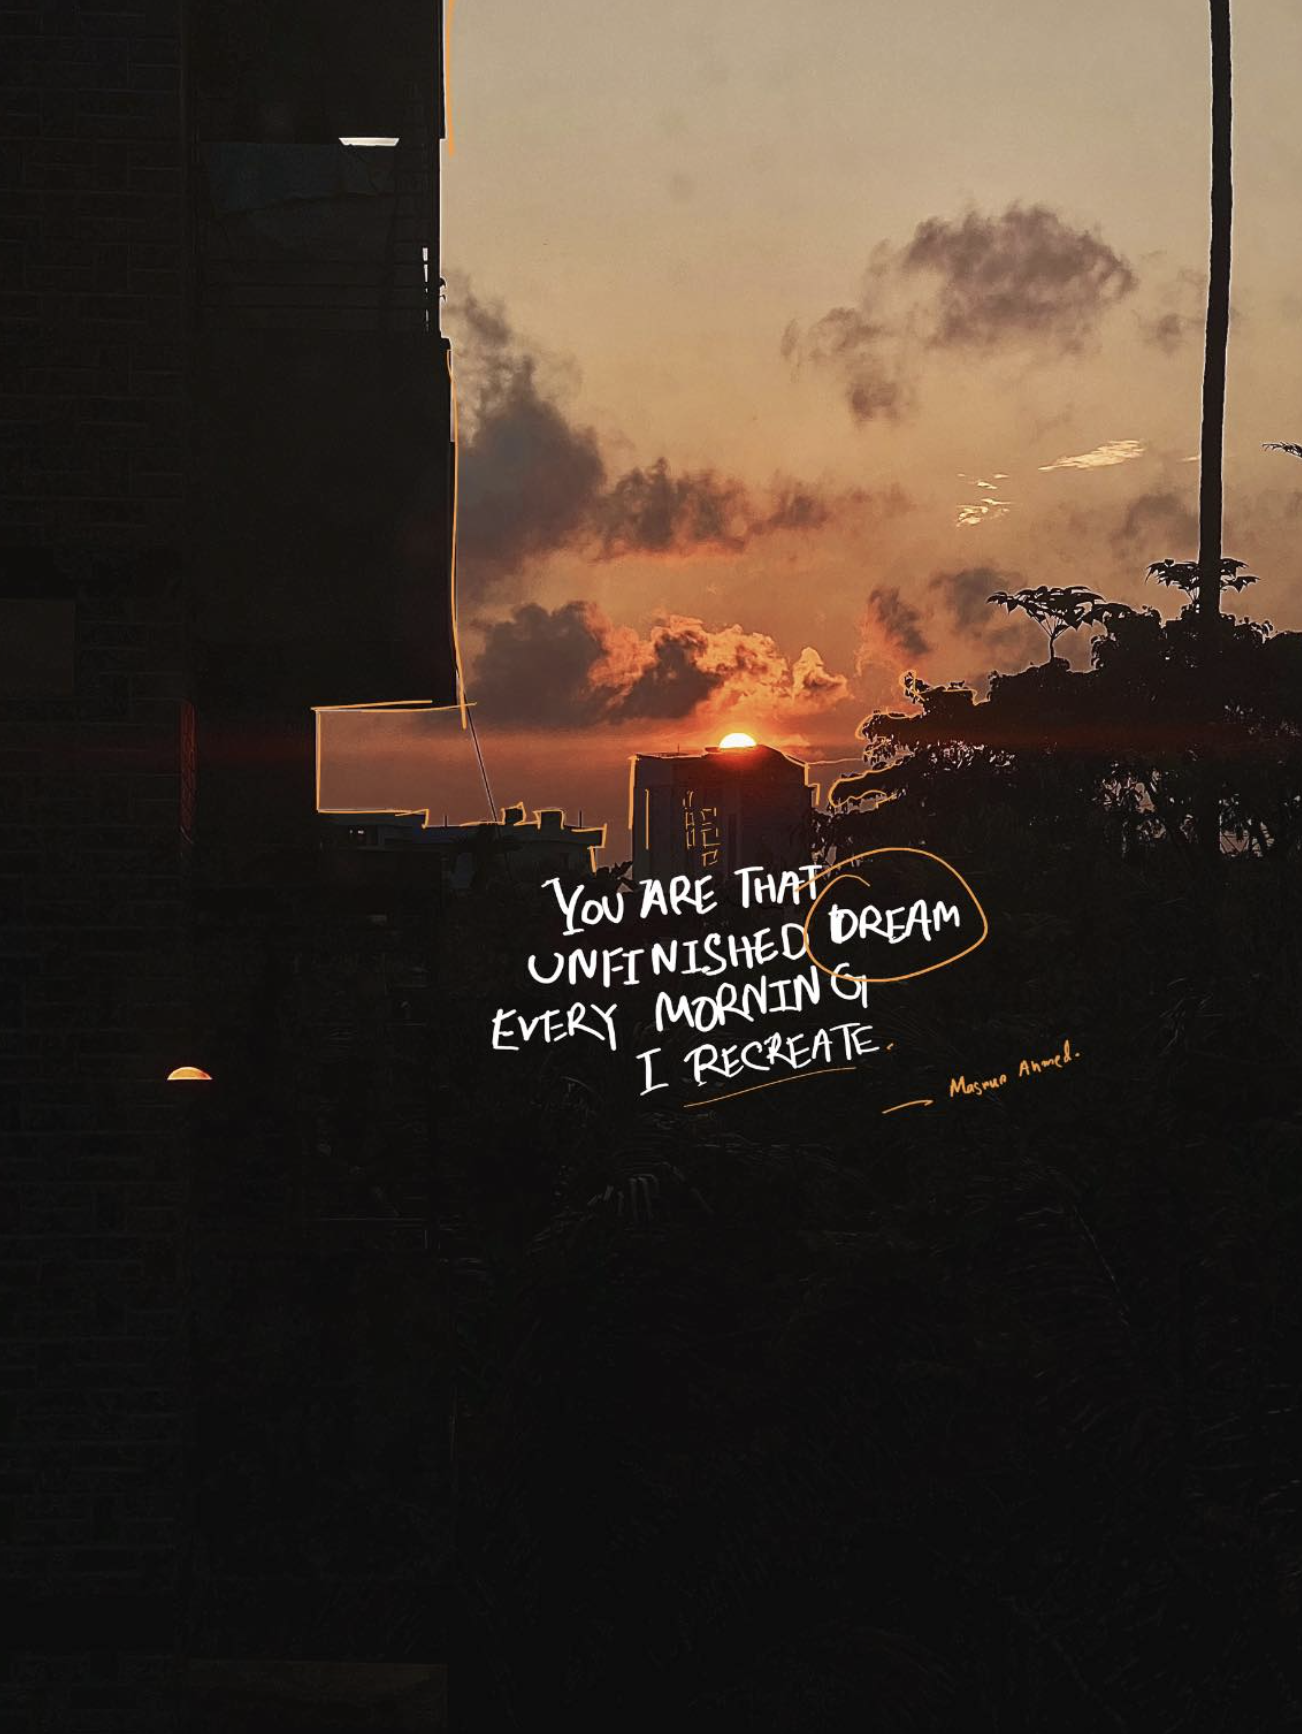 YOU ARE THAT
UNFINISHED DREAM
EVERY MORNING
I RECREATE.
Ahmed.